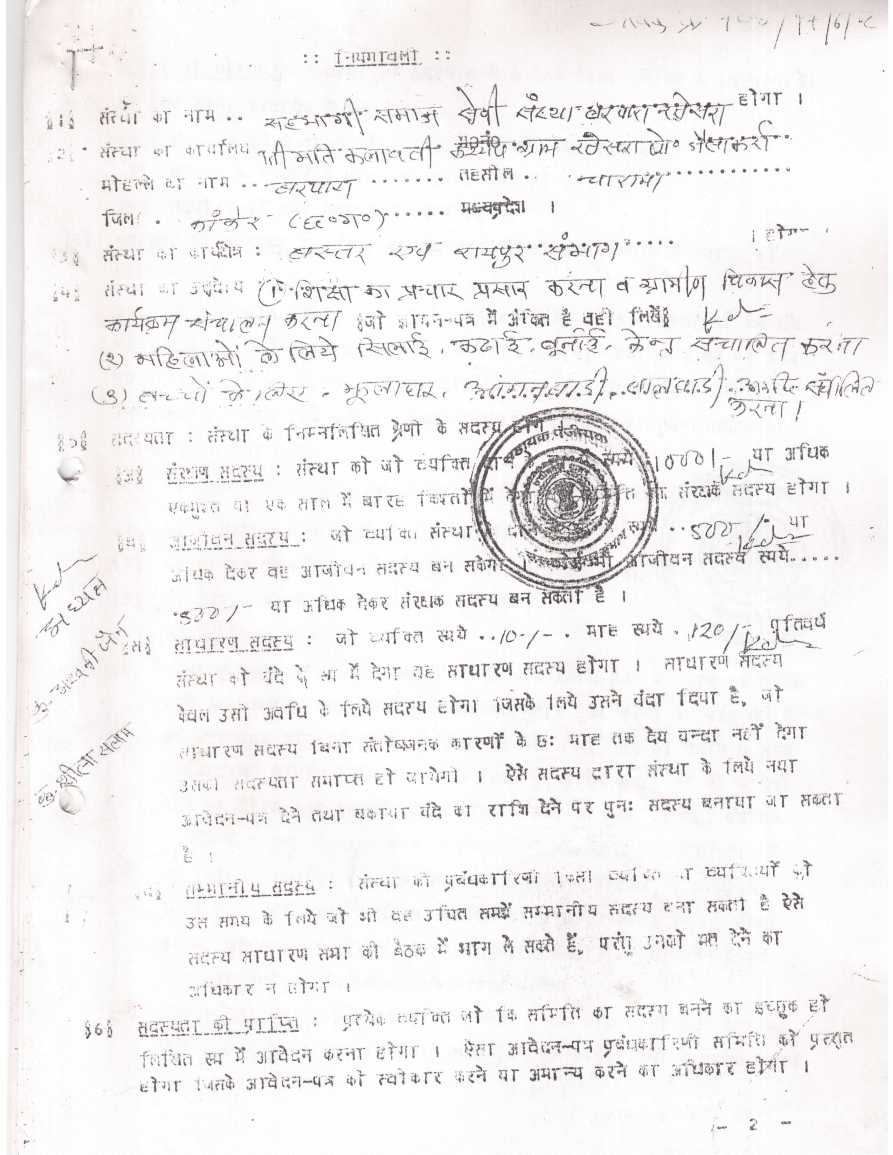 :: नियमावली ::
§1§ संस्था का नाम .. सहभागी समाज सेवी संस्था हरपारा खैसरा होगा ।
§2§ संस्था का कार्यालय श्रीमति कलावती कश्यप ग्राम खैसरा पो०
मोहल्ले का नाम ... हरपारा ....... तहसील .. चारामा ............
जिला . कांकेर (छ०ग०) ...... मध्यप्रदेश ।
§3§ संस्था का कार्यक्षेत्र : बस्तर एवं रायपुर संभाग ..... होगा ।
§4§ संस्था का उद्देश्य (1) शिक्षा का प्रचार प्रसार करना व ग्रामीण विकास हेतु
कार्यक्रम संचालन करना §जो आवेदन-पत्र में अंकित है वही लिखें§
(२) महिलाओं के लिये सिलाई, कढाई, बूनाई, केन्द्र संचालित करना
(३) बच्चों के लिए - झूलाघर, आंगनबाडी, बालबाडी, आदि संचालित
करना ।
§5§ सदस्यता : संस्था के निम्नलिखित श्रेणी के सदस्य होंगे
§अ§ संरक्षण सदस्य : संस्था को जो व्यक्ति रूपये 1000/- या अधिक
एकमुश्त या एक साल में बारह किश्तों में संरक्षक सदस्य होगा ।
§ब§ आजीवन सदस्य : जो व्यक्ति संस्था .. 500/- या
अधिक देकर वह आजीवन सदस्य बन सकेगा । आजीवन सदस्य रूपये.....
500/- या अधिक देकर संरक्षक सदस्य बन सकता है ।
§स§ साधारण सदस्य : जो व्यक्ति रूपये ..10/-. माह रूपये . 120/- प्रतिवर्ष
संस्था को चंदे के रूप में देगा वह साधारण सदस्य होगा । साधारण सदस्य
केवल उसी अवधि के लिये सदस्य होगा जिसके लिये उसने चंदा दिया है, जो
साधारण सदस्य बिना संतोषजनक कारणों के छः माह तक देय चन्दा नहीं देगा
उसकी सदस्यता समाप्त हो जायेगी । ऐसे सदस्य द्वारा संस्था के लिये नया
आवेदन-पत्र देने तथा बकाया चंदे का राशि देने पर पुनः सदस्य बनाया जा सकता
है ।
§द§ सम्मानीय सदस्य : संस्था की प्रबंधकारिणी किसी व्यक्ति या व्यक्तियों को
उस समय के लिये जो भी वह उचित समझें सम्मानीय सदस्य बना सकती है ऐसे
सदस्य साधारण सभा की बैठक में भाग ले सकते हैं, परंतु उनको मत देने का
अधिकार न होगा ।
§6§ सदस्यता की प्राप्ति : प्रत्येक व्यक्ति जो कि समिति का सदस्य बनने का इच्छुक हो
लिखित रूप में आवेदन करना होगा । ऐसा आवेदन-पत्र प्रबंधकारिणी समिति को प्रस्तुत
होगा जिसके आवेदन-पत्र को स्वीकार करने या अमान्य करने का अधिकार होगा ।
- 2 -
अध्यक्ष